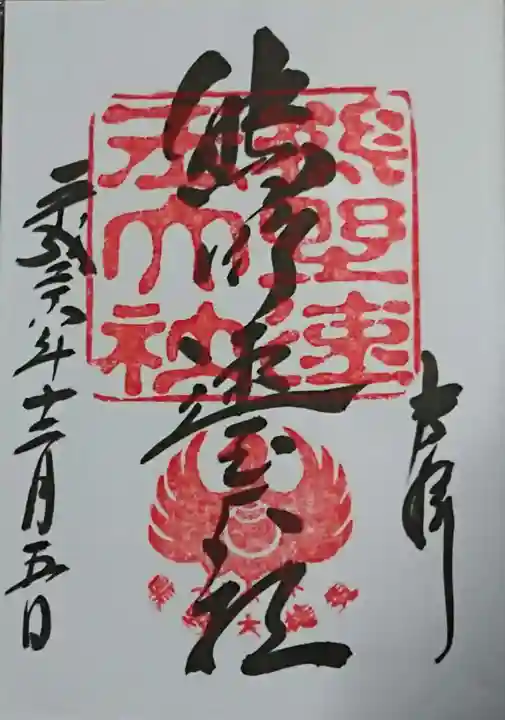 奉拝
熊野速玉大社
熊野速
玉大社
平成二十八年十二月五日